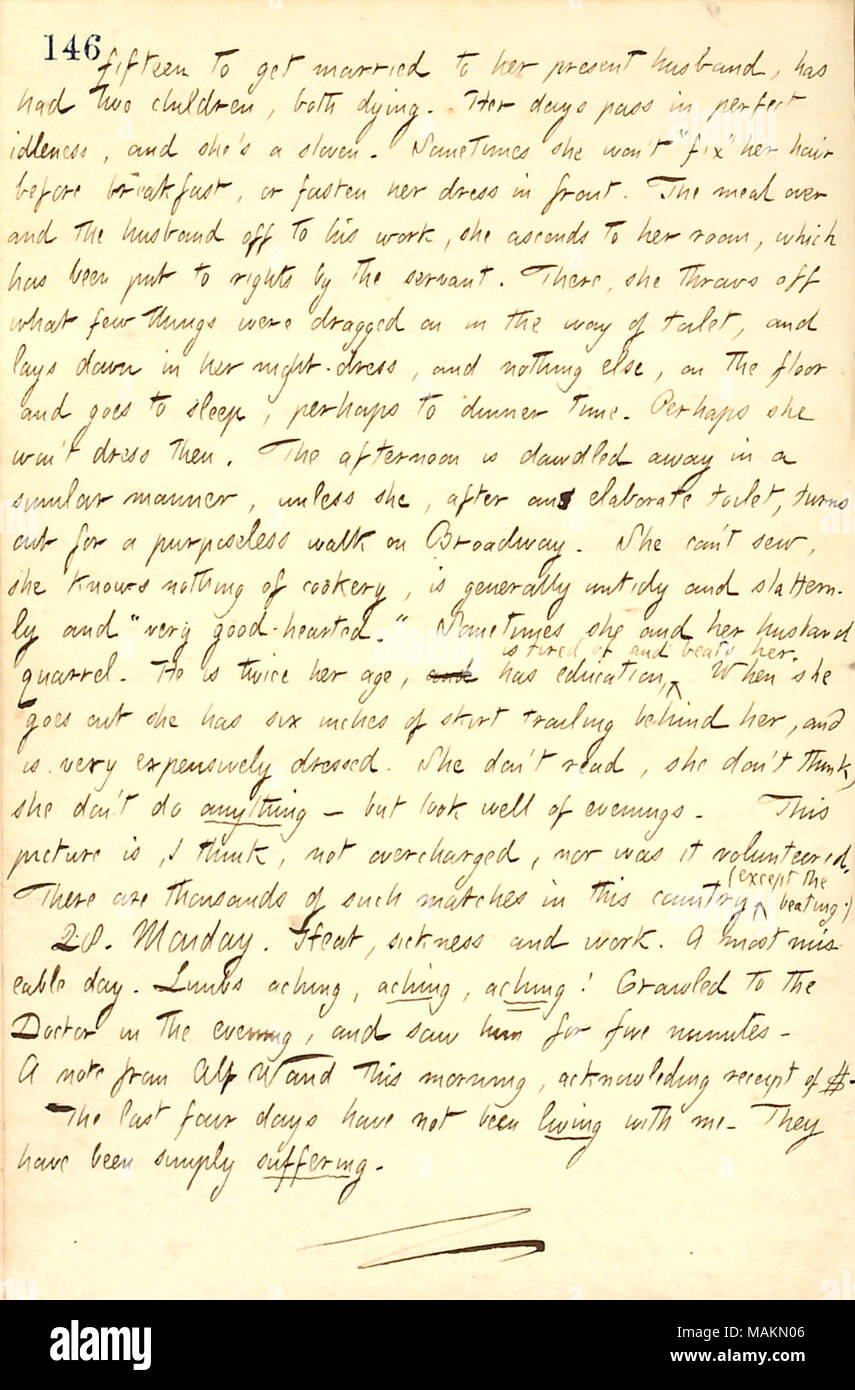 146
fifteen to get married to her present husband, has
had two children, both dying. Her days pass in perfect
idleness, and she's a sloven. Sometimes she won't "fix" her hair
before breakfast, or fasten her dress in front. The meal over
and the husband off to his work, she ascends to her room, which
has been put to rights by the servant. There, she throws off
what few things were dragged on in the way of toilet, and
lays down in her night-dress, and nothing else, on the floor
and goes to sleep, perhaps to dinner time. Perhaps she
won't dress then. The afternoon is dawdled away in a
similar manner, unless she, after an elaborate toilet, turns
out for a purposeless walk on Broadway. She can't sew,
she knows nothing of cookery, is generally untidy and slattern-
ly and "very good-hearted." Sometimes she and her husband
is tired of and beats her.
quarrel. He is twice her age, and has education, ^ When she
goes out she has six inches of skirt trailing behind her, and
is very expensively dressed. She don't read, she don't think,
she don't do anything — but look well of evenings. This
picture is, I think, not overcharged, nor was it volunteered.
(except the
There are thousands of such matches in this country ^ beating.)
28. Monday. Heat, sickness and work. A most mis-
eable day. Limbs aching, aching, aching! Crawled to the
Doctor in the evening, and saw him for five minutes.
A note from Alf Waud this morning, acknowleding receipt of $.
The last four days have not been living with me. They
have been simply suffering.
alamy
Image ID: MAKN06
www.alamy.com